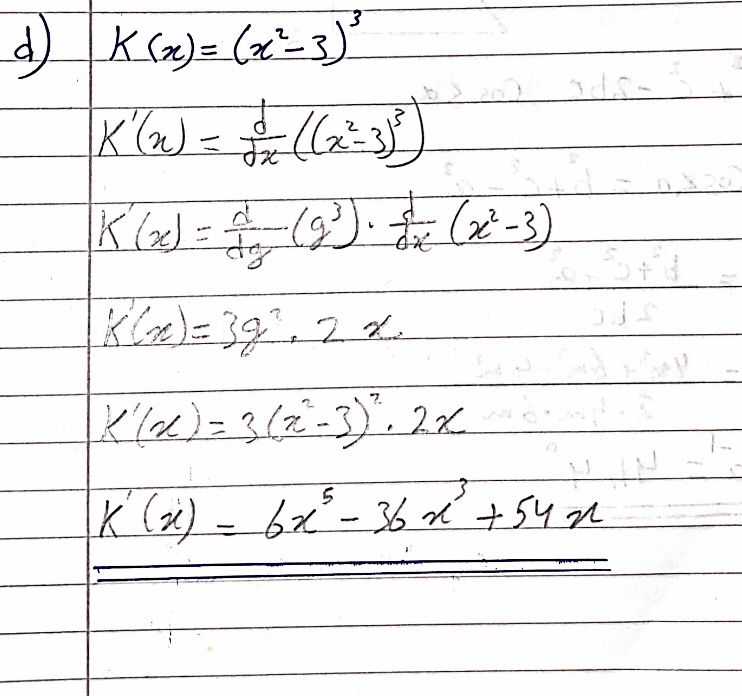 d) K(x) = (x² - 3)³
K'(x) = d/dx ((x² - 3)³)
K'(x) = d/dg (g³) · d/dx (x² - 3)
K'(x) = 3g² · 2x
K'(x) = 3(x² - 3)² · 2x
K'(x) = 6x⁵ - 36x³ + 54x